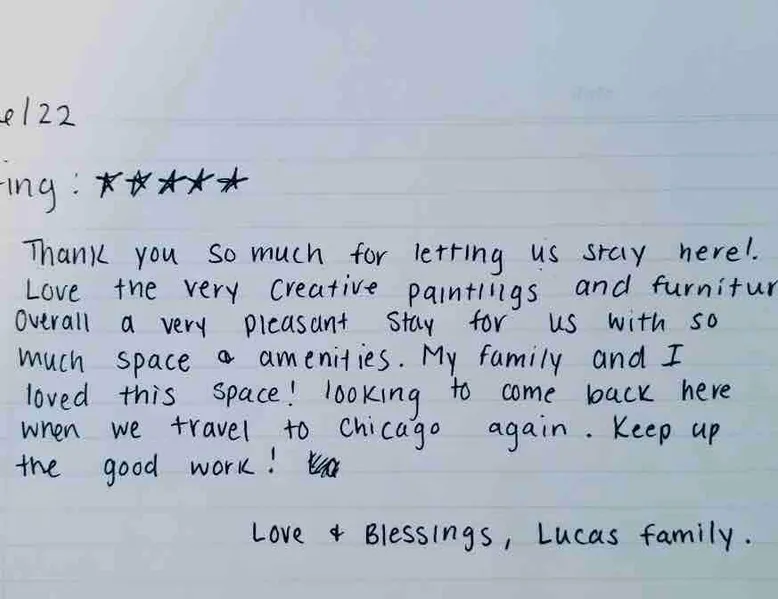 e/22
ing: ★★★★★
Thank you so much for letting us stay here!.
Love the very creative paintings and furnitur
Overall a very pleasant stay for us with so
much space & amenities. My family and I
loved this space! looking to come back here
when we travel to Chicago again. Keep up
the good work!
Love + Blessings, Lucas family.